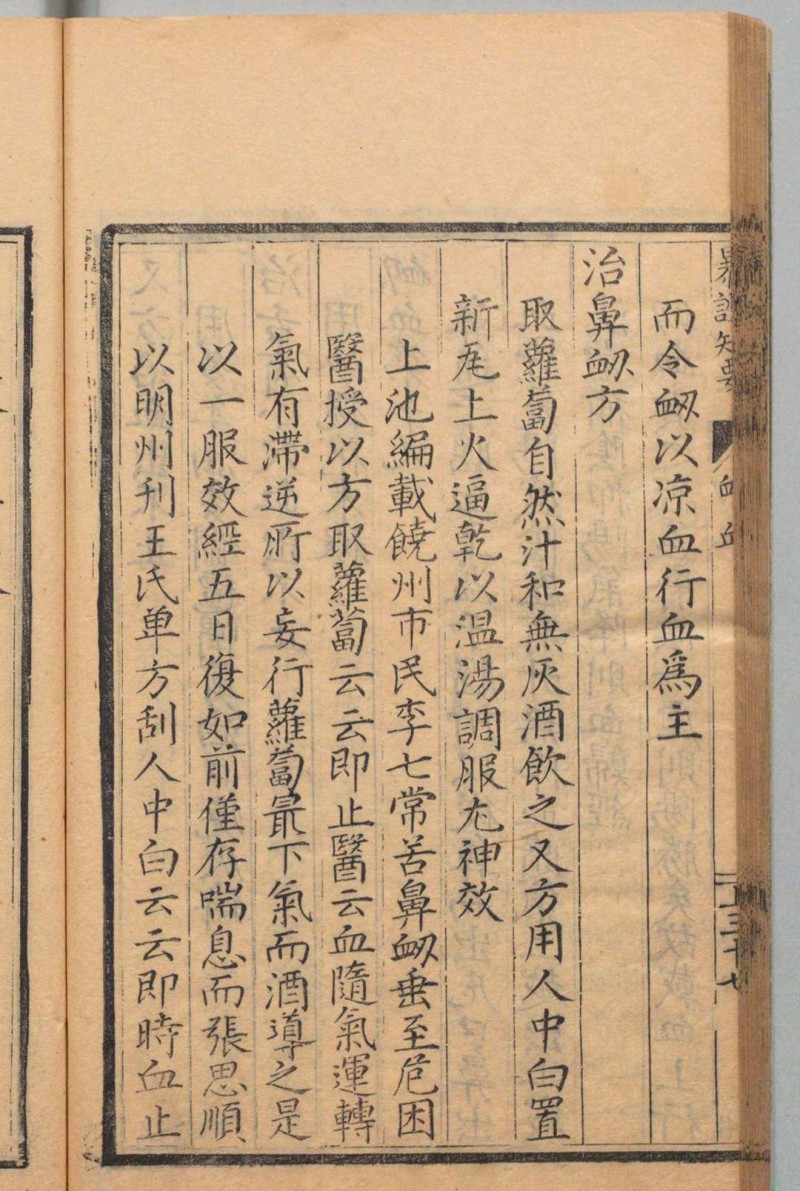 而令衂以凉血行血爲主
治鼻衂方
取蘿蔔自然汁和無灰酒飲之又方用人中白置
新瓦上火逼乾以温湯調服尤神效
上池編載饒州市民李七常苦鼻衂垂至危困
醫授以方取蘿蔔云云即止醫云血隨氣運轉
氣有滯逆所以妄行蘿蔔最下氣而酒導之是
以一服效經五日復如前僅存喘息而張思順
以明州刋王氏单方刮人中白云云即時血止